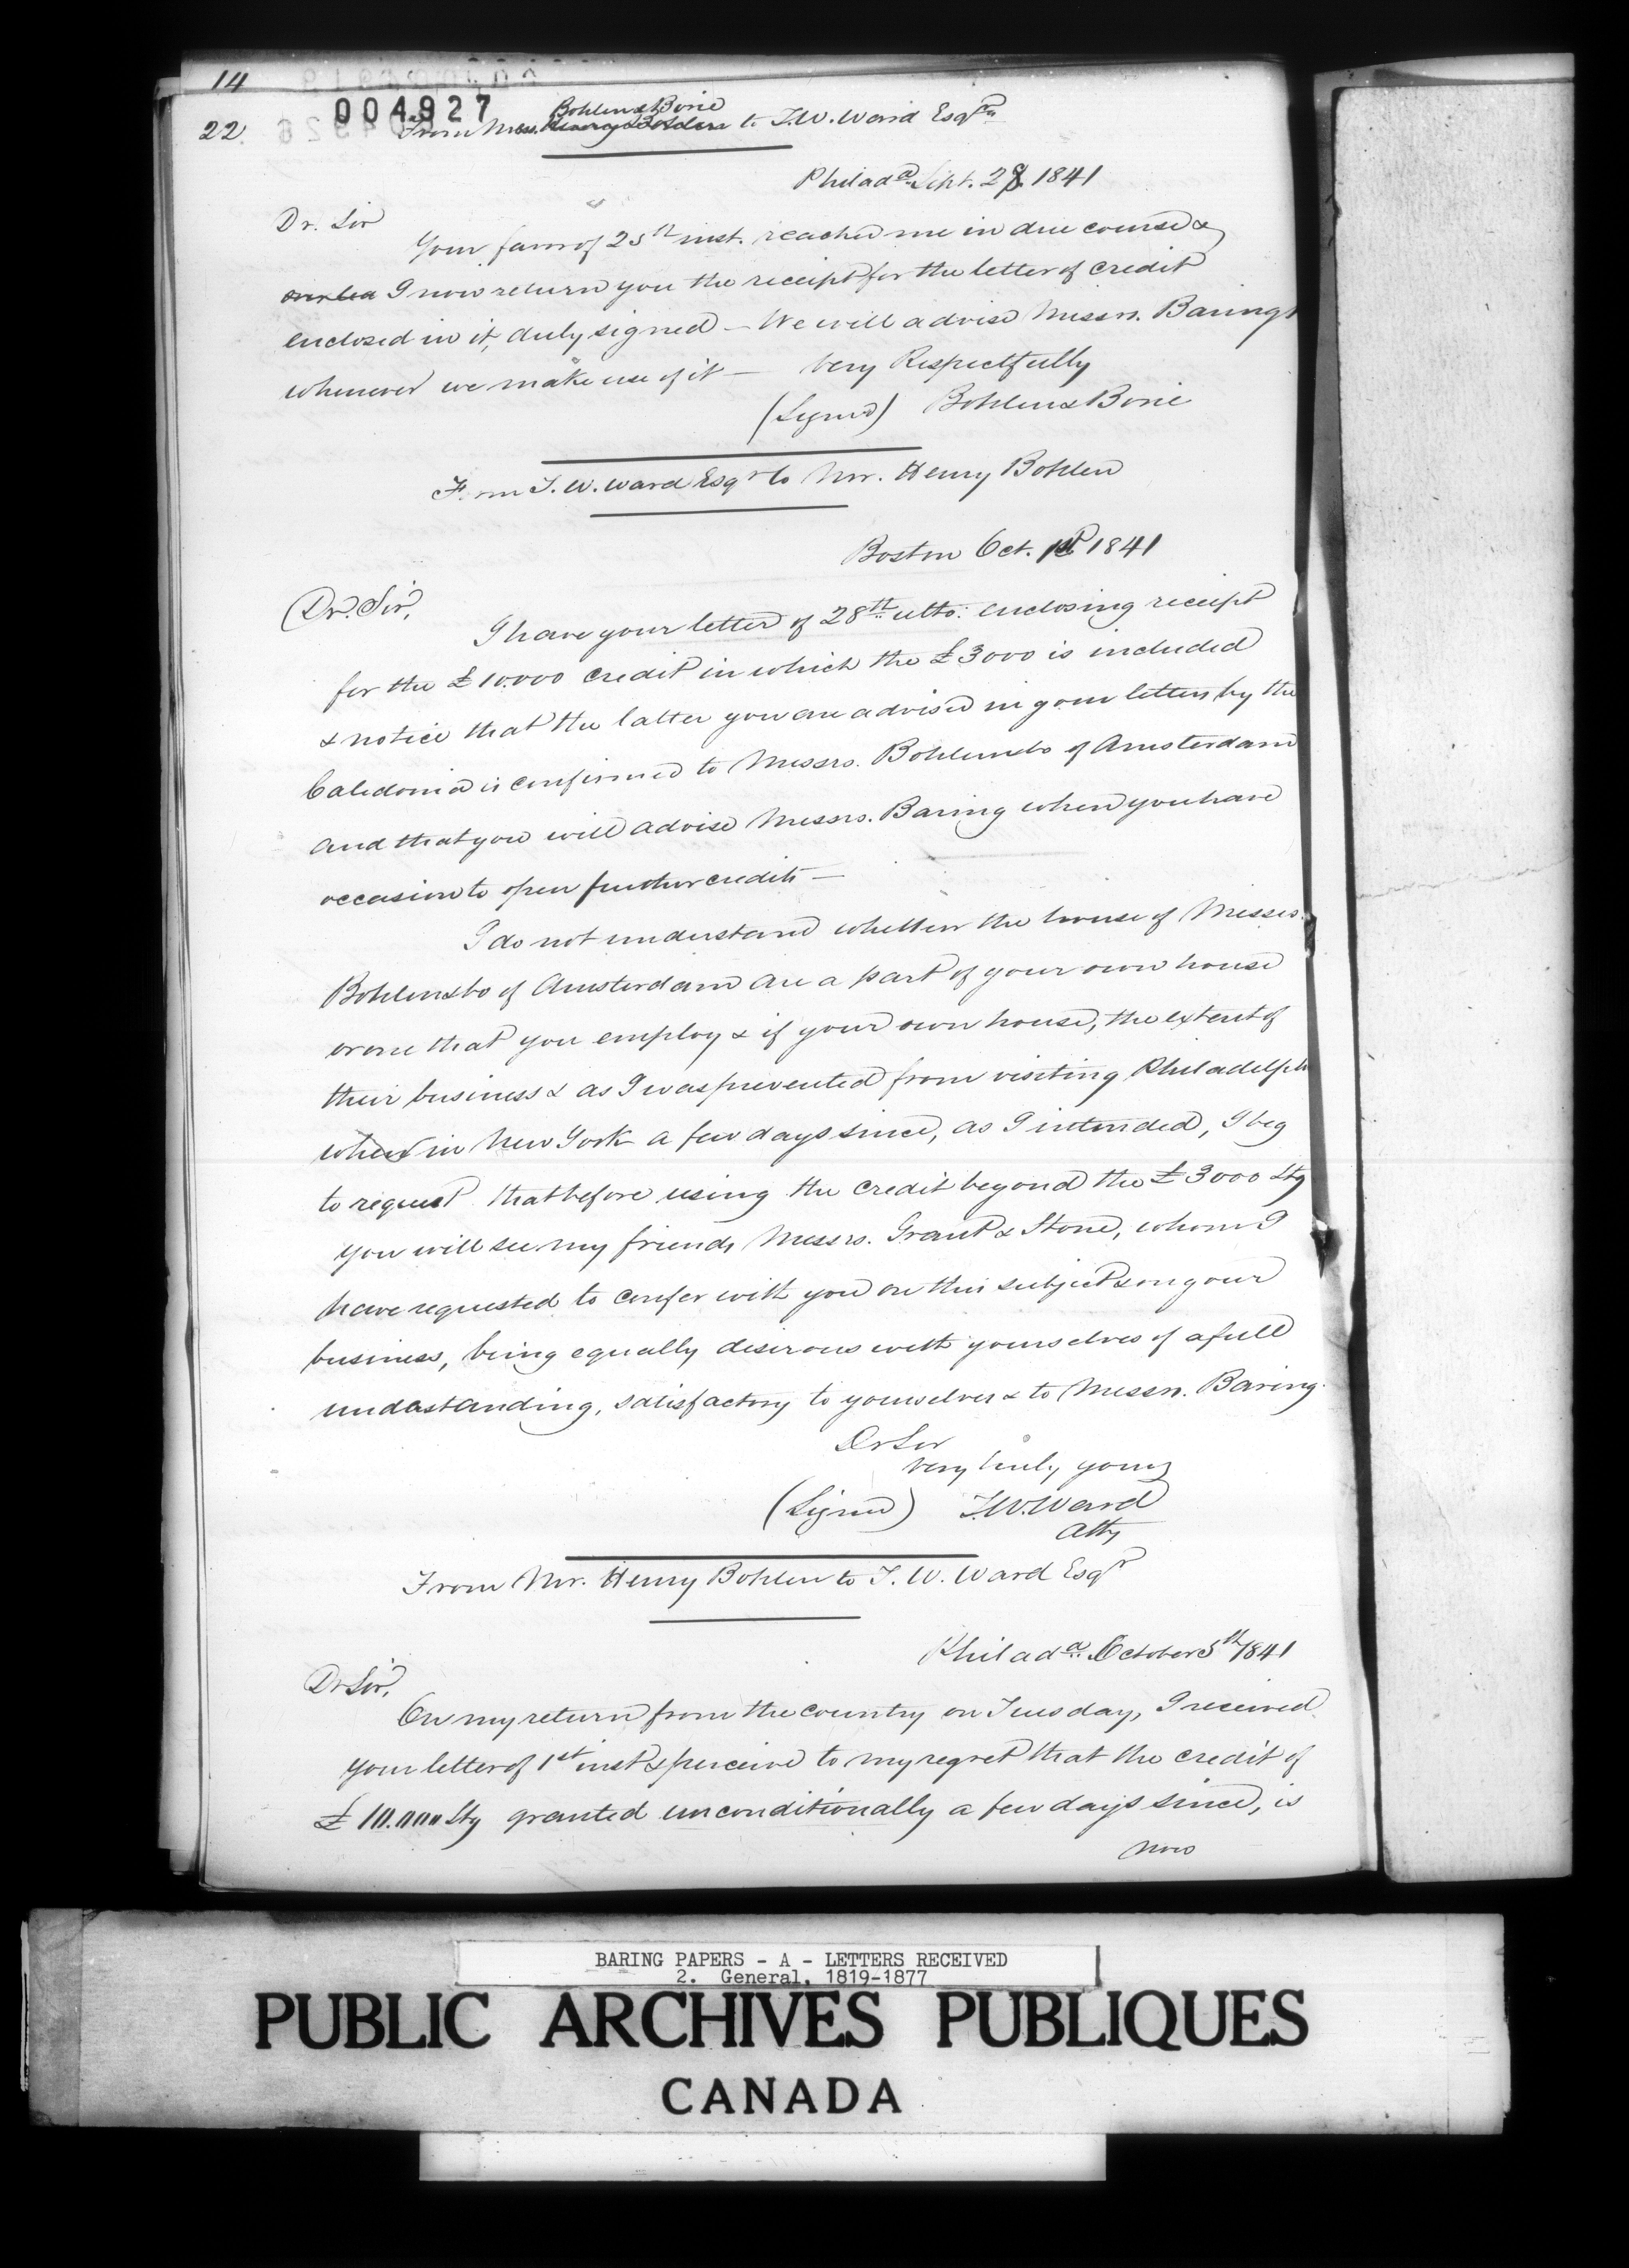 14
004927
22.
Bohlen & Borie
From Mess. to T.W. Ward Esqr
Philada. Sept. 28. 1841
Dr. Sir
Your favor of 25th inst. reached me in due course &
I now return you the receipt for the letter of credit
enclosed in it, duly signed — We will advise Messrs. Barings
whenever we make use of it — Very Respectfully
(Signed) Bohlen & Borie
From T. W. Ward Esqr to Mr. Henry Bohlen
Boston Oct. 1st 1841
Dr. Sir,
I have your letter of 28th ulto: enclosing receipt
for the £10.000 credit in which the £3000 is included
& notice that the latter you are advised in your letters by the
Caledonia is confirmed to Messrs. Bohlen & Co of Amsterdam
and that you will advise Messrs. Baring when you have
occasion to open further credits —
I do not understand whether the house of Messrs.
Bohlen & Co of Amsterdam are a part of your own house
or one that you employ & if your own house, the extent of
their business & as I was prevented from visiting Philadelph
when in New York a few days since, as I intended, I beg
to request that before using the credit beyond the £3000 Stg
you will see my friends Messrs. Grant & Stone, whom I
have requested to confer with you on this subject & on your
business, being equally desirous with yourselves of a full
undastanding, satisfactory to yourselves & to Messrs. Baring.
Dr Sir
Very truly yours
(Signed) T.W. Ward
Atty
From Mr. Henry Bohlen to T. W. Ward Esqr
Philada. October 5th 1841
Dr Sir,
On my return from the country on Tuesday, I received
your letter of 1st inst & perceive to my regret that the credit of
£10.000 Stg granted unconditionally a few days since, is
now
BARING PAPERS - A - LETTERS RECEIVED
2. General, 1819-1877
PUBLIC ARCHIVES PUBLIQUES
CANADA